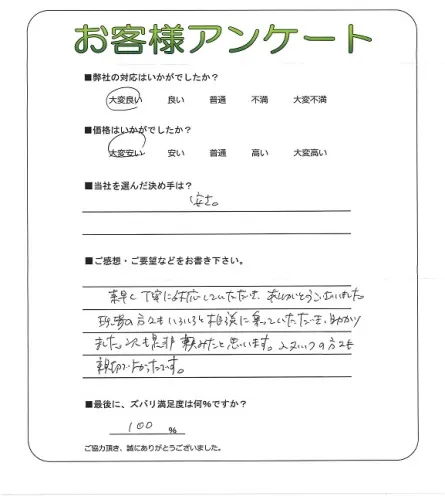 お客様アンケート
■弊社の対応はいかがでしたか?
大変良い 良い 普通 不満 大変不満
■価格はいかがでしたか?
大変安い 安い 普通 高い 大変高い
■当社を選んだ決め手は?
安さ。
■ご感想・ご要望などをお書き下さい。
素早く丁寧に対応していただき、ありがとうございました。
現場の方にもいろいろと相談に乗っていただき、助かり
ました。次も是非頼みたいと思います。の方も
親切でよかったです。
■最後に、ズバリ満足度は何%ですか?
100 %
ご協力頂き、誠にありがとうございました。